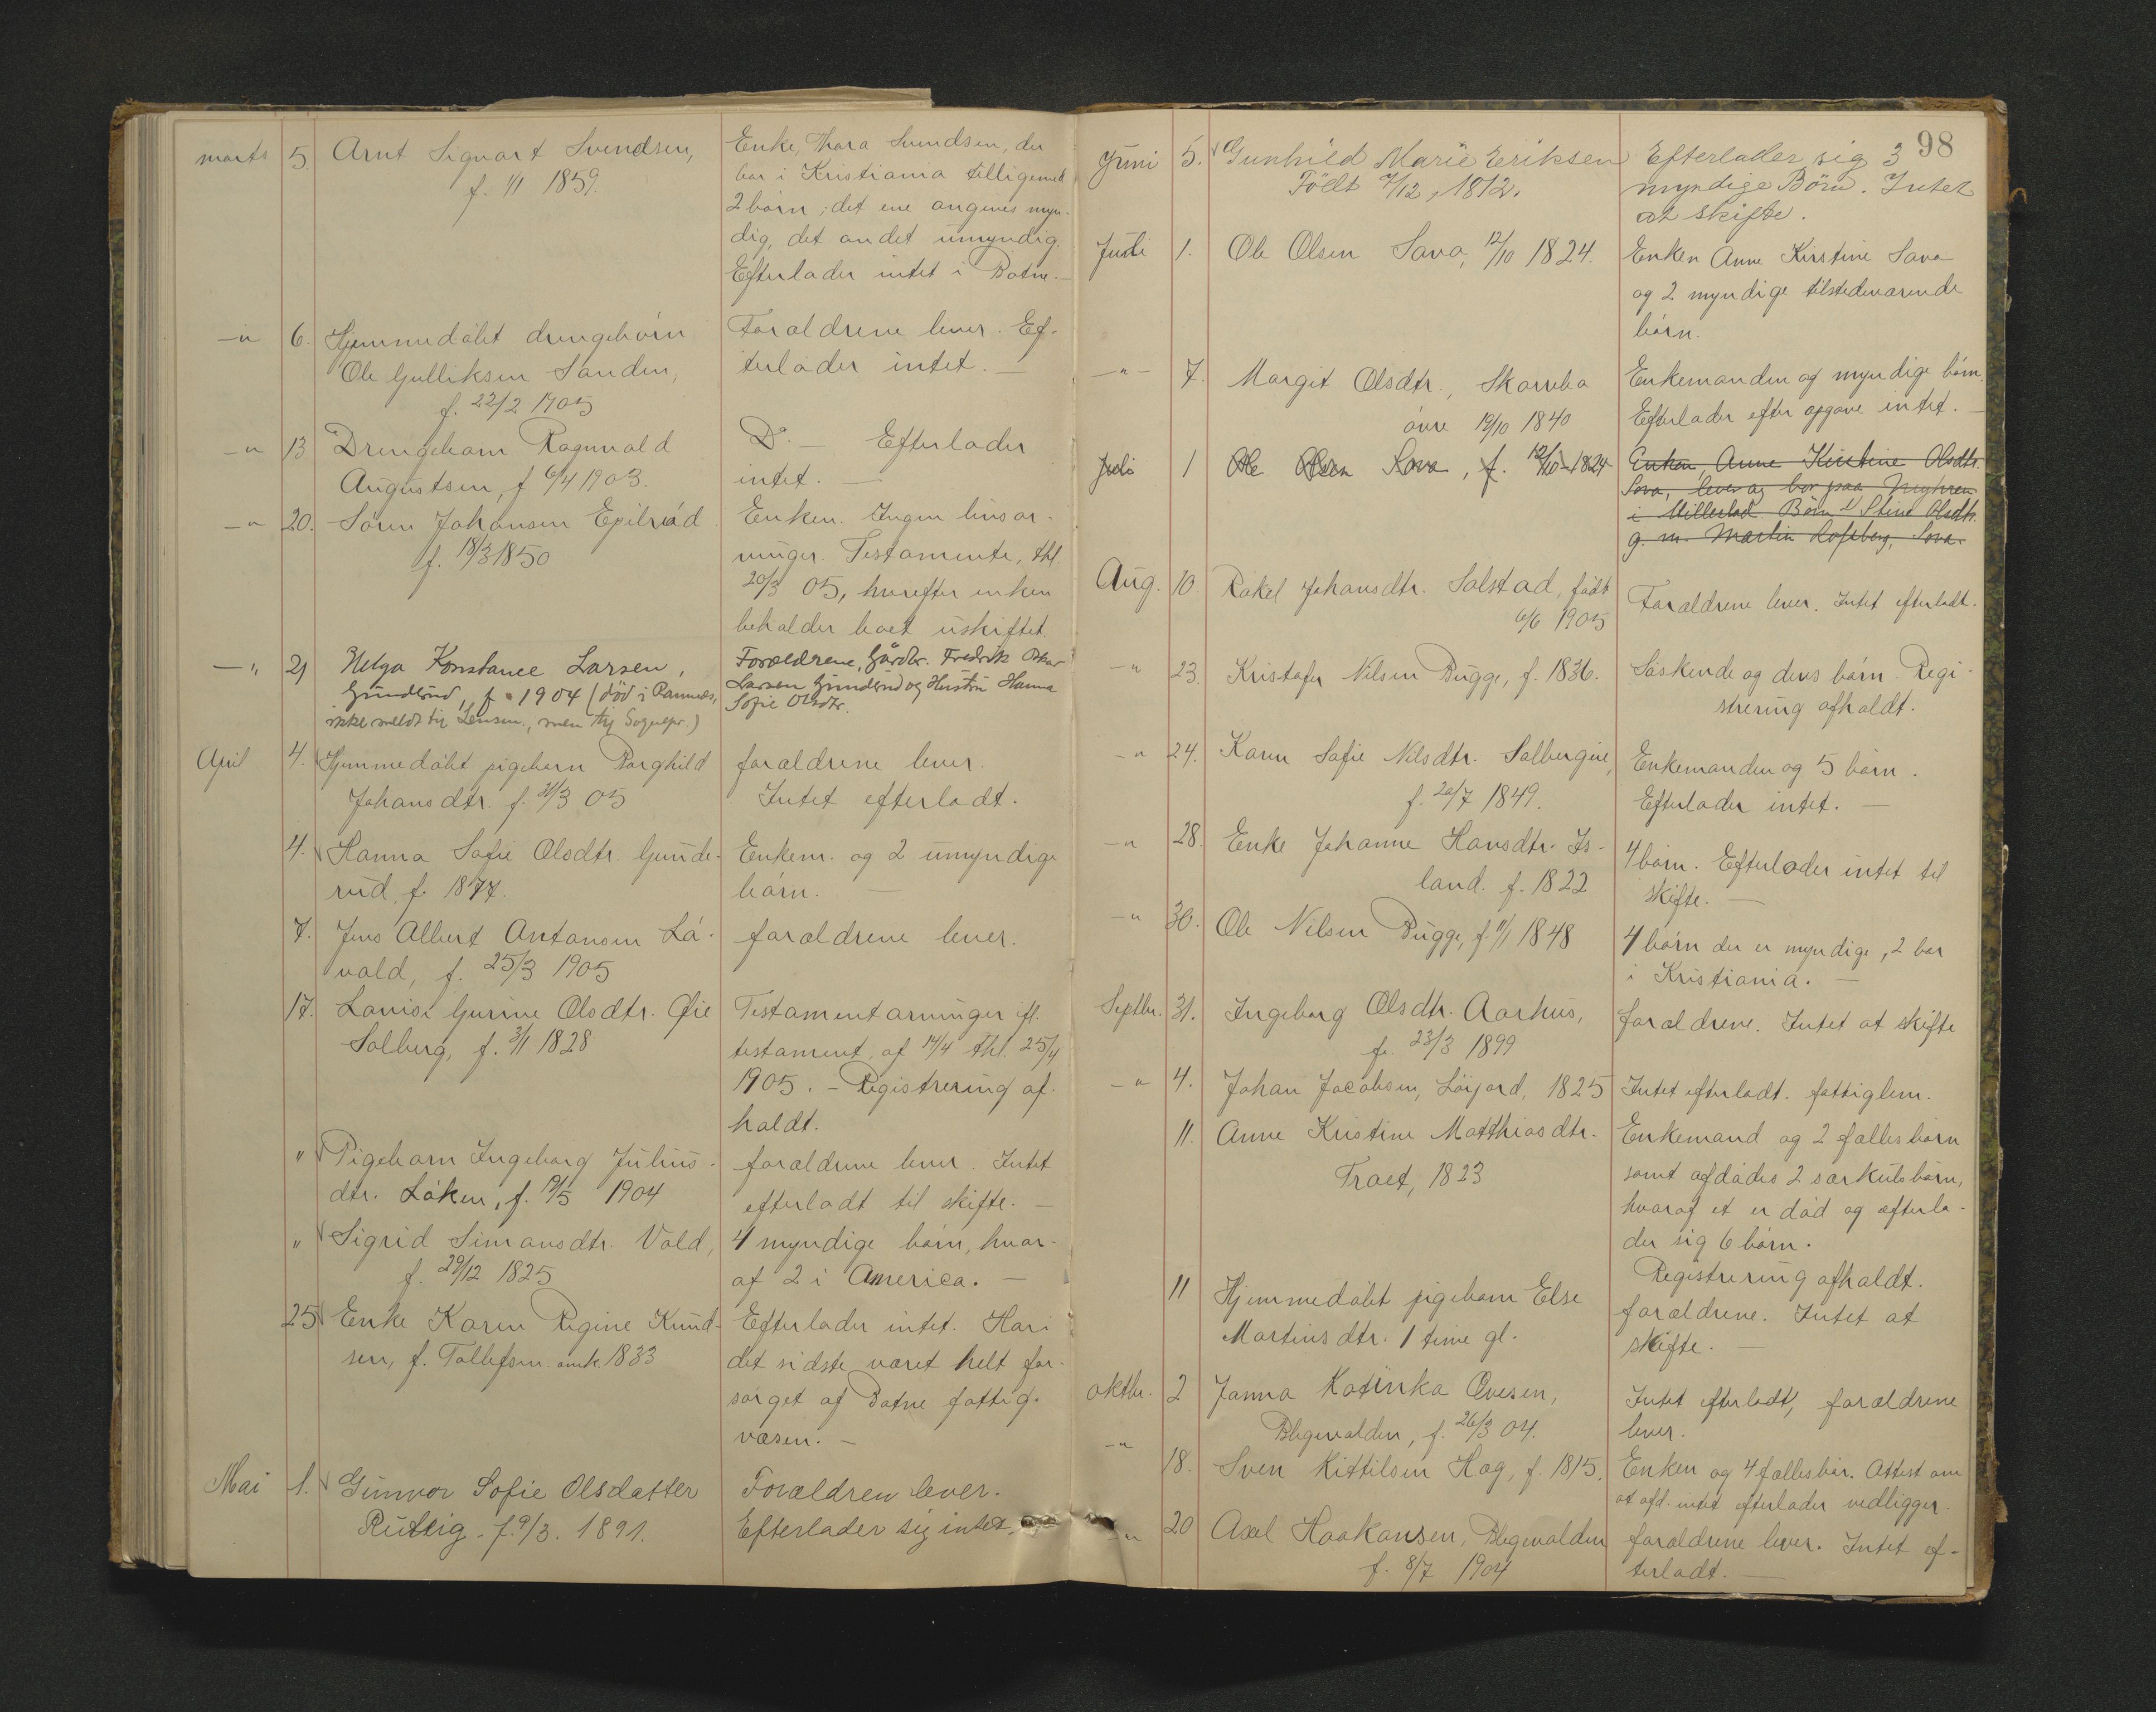 marts 5. Arnt Sigvart Svendsen, Enke, Thora Svendsen, der
f. 1/1 1859. bor i Kristiania tilligemed
2 børn; det ene angives myn-
dig, det andet umyndig.
Efterlader intet i Botne. —
—"— 6. Hjemmedøbt drengebørn Forældrene lever. Ef-
Ole Gulliksen Sanden, terlader intet. —
f. 22/2 1905
—"— 13 Drengebarn Ragnvald Do. — Efterlader
Augustsen, f 6/4 1903. intet. —
—"— 20. Søren Johansen Epilrød Enken. Ingen livsar-
f. 18/3 1850 vinger. Testamente, thl.
20/3 05, hvorefter enken
beholder boet uskiftet.
—"— 21 Helga Konstance Larsen, Forældrene, Gårdbr. Fredrik Oskar
Gunderud, f. 1904 (død i Ramnæs, Larsen Gunderud og Hustru Hanna
ikke meldt til Lensm., men til Sognepr.) Sofie Olsdtr.
April 4. Hjemmedøbt pigebarn Borghild forældrene lever.
Johansdtr. f. 31/3 05 Intet efterladt.
4. Hanna Sofie Olsdtr. Gunde- Enkem. og 2 umyndige
rud, f. 1877. børn. —
7. Jens Albert Antonsen Lø- forældrene lever.
vald, f. 25/3 1905
17. Lovise Gurine Olsdtr. Øie Testamentarvinger ifl.
Solberg, f. 3/1 1828 testament af 14/4 thl. 25/4
1905. – Registrering af-
holdt.
" Pigebarn Ingeborg Julius- forældrene lever. Intet
dtr. Løken, f. 19/5 1904 efterladt til skifte. —
" Sigrid Simonsdtr. Vold, 4 myndige børn, hvor-
f. 29/12 1825 af 2 i America. —
25 Enke Karen Regine Knud- Efterlader intet. Har i
sen, f. Tollefsen omk 1833 det sidste været helt for-
sørget af Botne fattig-
væsen. —
Mai 1. Gunvor Sofie Olsdatter Forældren lever.
Rutlig. f. 9/3. 1891. Efterlader sig intet.
98
Juni 5. Gunhild Marie Eriksen Efterlader sig 3
Födt 7/12, 1812. myndige Börn. Intet
at skifte.
Juli 1. Ole Olsen Sova, 12/10 1824. Enken Anne Kirstine Sova
og 2 myndige tilstedeværende
børn.
—"— 7. Margit Olsdtr., Skarrebo Enkemanden og myndige børn.
øvre 19/10 1840 Efterlader efter opgave intet. —
Juli 1 Ole Olsen Sova, f. 12/10-1824 Enken, Anne Kirstine Olsdtr.
Sova, lever og bor paa Myhren
i Hillestad Börn 1) Stine Olsdtr.
g. m. Martin Lofsberg, Sova.
Aug. 10 Rakel Johansdtr. Solstad, født Forældrene lever. Intet efterladt.
6/6 1905
—"— 23. Kristofer Nilsen Bugge, f. 1836. Søskende og deres børn. Regi-
strering afholdt.
—"— 24. Karen Sofie Nilsdtr. Solbergeie, Enkemanden og 5 børn.
f. 20/7 1849. Efterlader intet. —
—"— 28. Enke Johanne Hansdtr. Is- 4 børn. Efterlader intet til
land. f. 1822 skifte. —
—"— 30. Ole Nilsen Bugge, f. 11/1 1848 4 børn der er myndige, 2 bor
i Kristiania. —
Septbr. 31. Ingeborg Olsdtr. Aarhus, forældrene. Intet at skifte
f. 23/3 1899
—"— 4. Johan Jacobsen, Löijord, 1825 Intet efterladt. fattiglem.
11. Anne Kristine Matthiasdtr. Enkemand og 2 fællesbørn
Traet, 1823 samt afdødes 2 særkulsbørn,
hvoraf et er død og efterla-
der sig 6 børn.
Registrering afholdt.
11 Hjemmedøbt pigebarn Else forældrene. Intet at
Martinsdtr. 1 time gl. skifte. —
oktbr. 2 Janna Katinka Ovesen, Intet efterladt, forældrene
Blegevolden, f. 26/3 04. lever.
—"— 18. Sven Kittilsen Hag, f. 1815. Enken og 4 fællesbør. Attest om
at afd. intet efterlader vedligger.
—"— 20 Axel Haakonsen, Blegevolden forældrene lever. Intet ef-
f. 8/7 1904 terladt. —